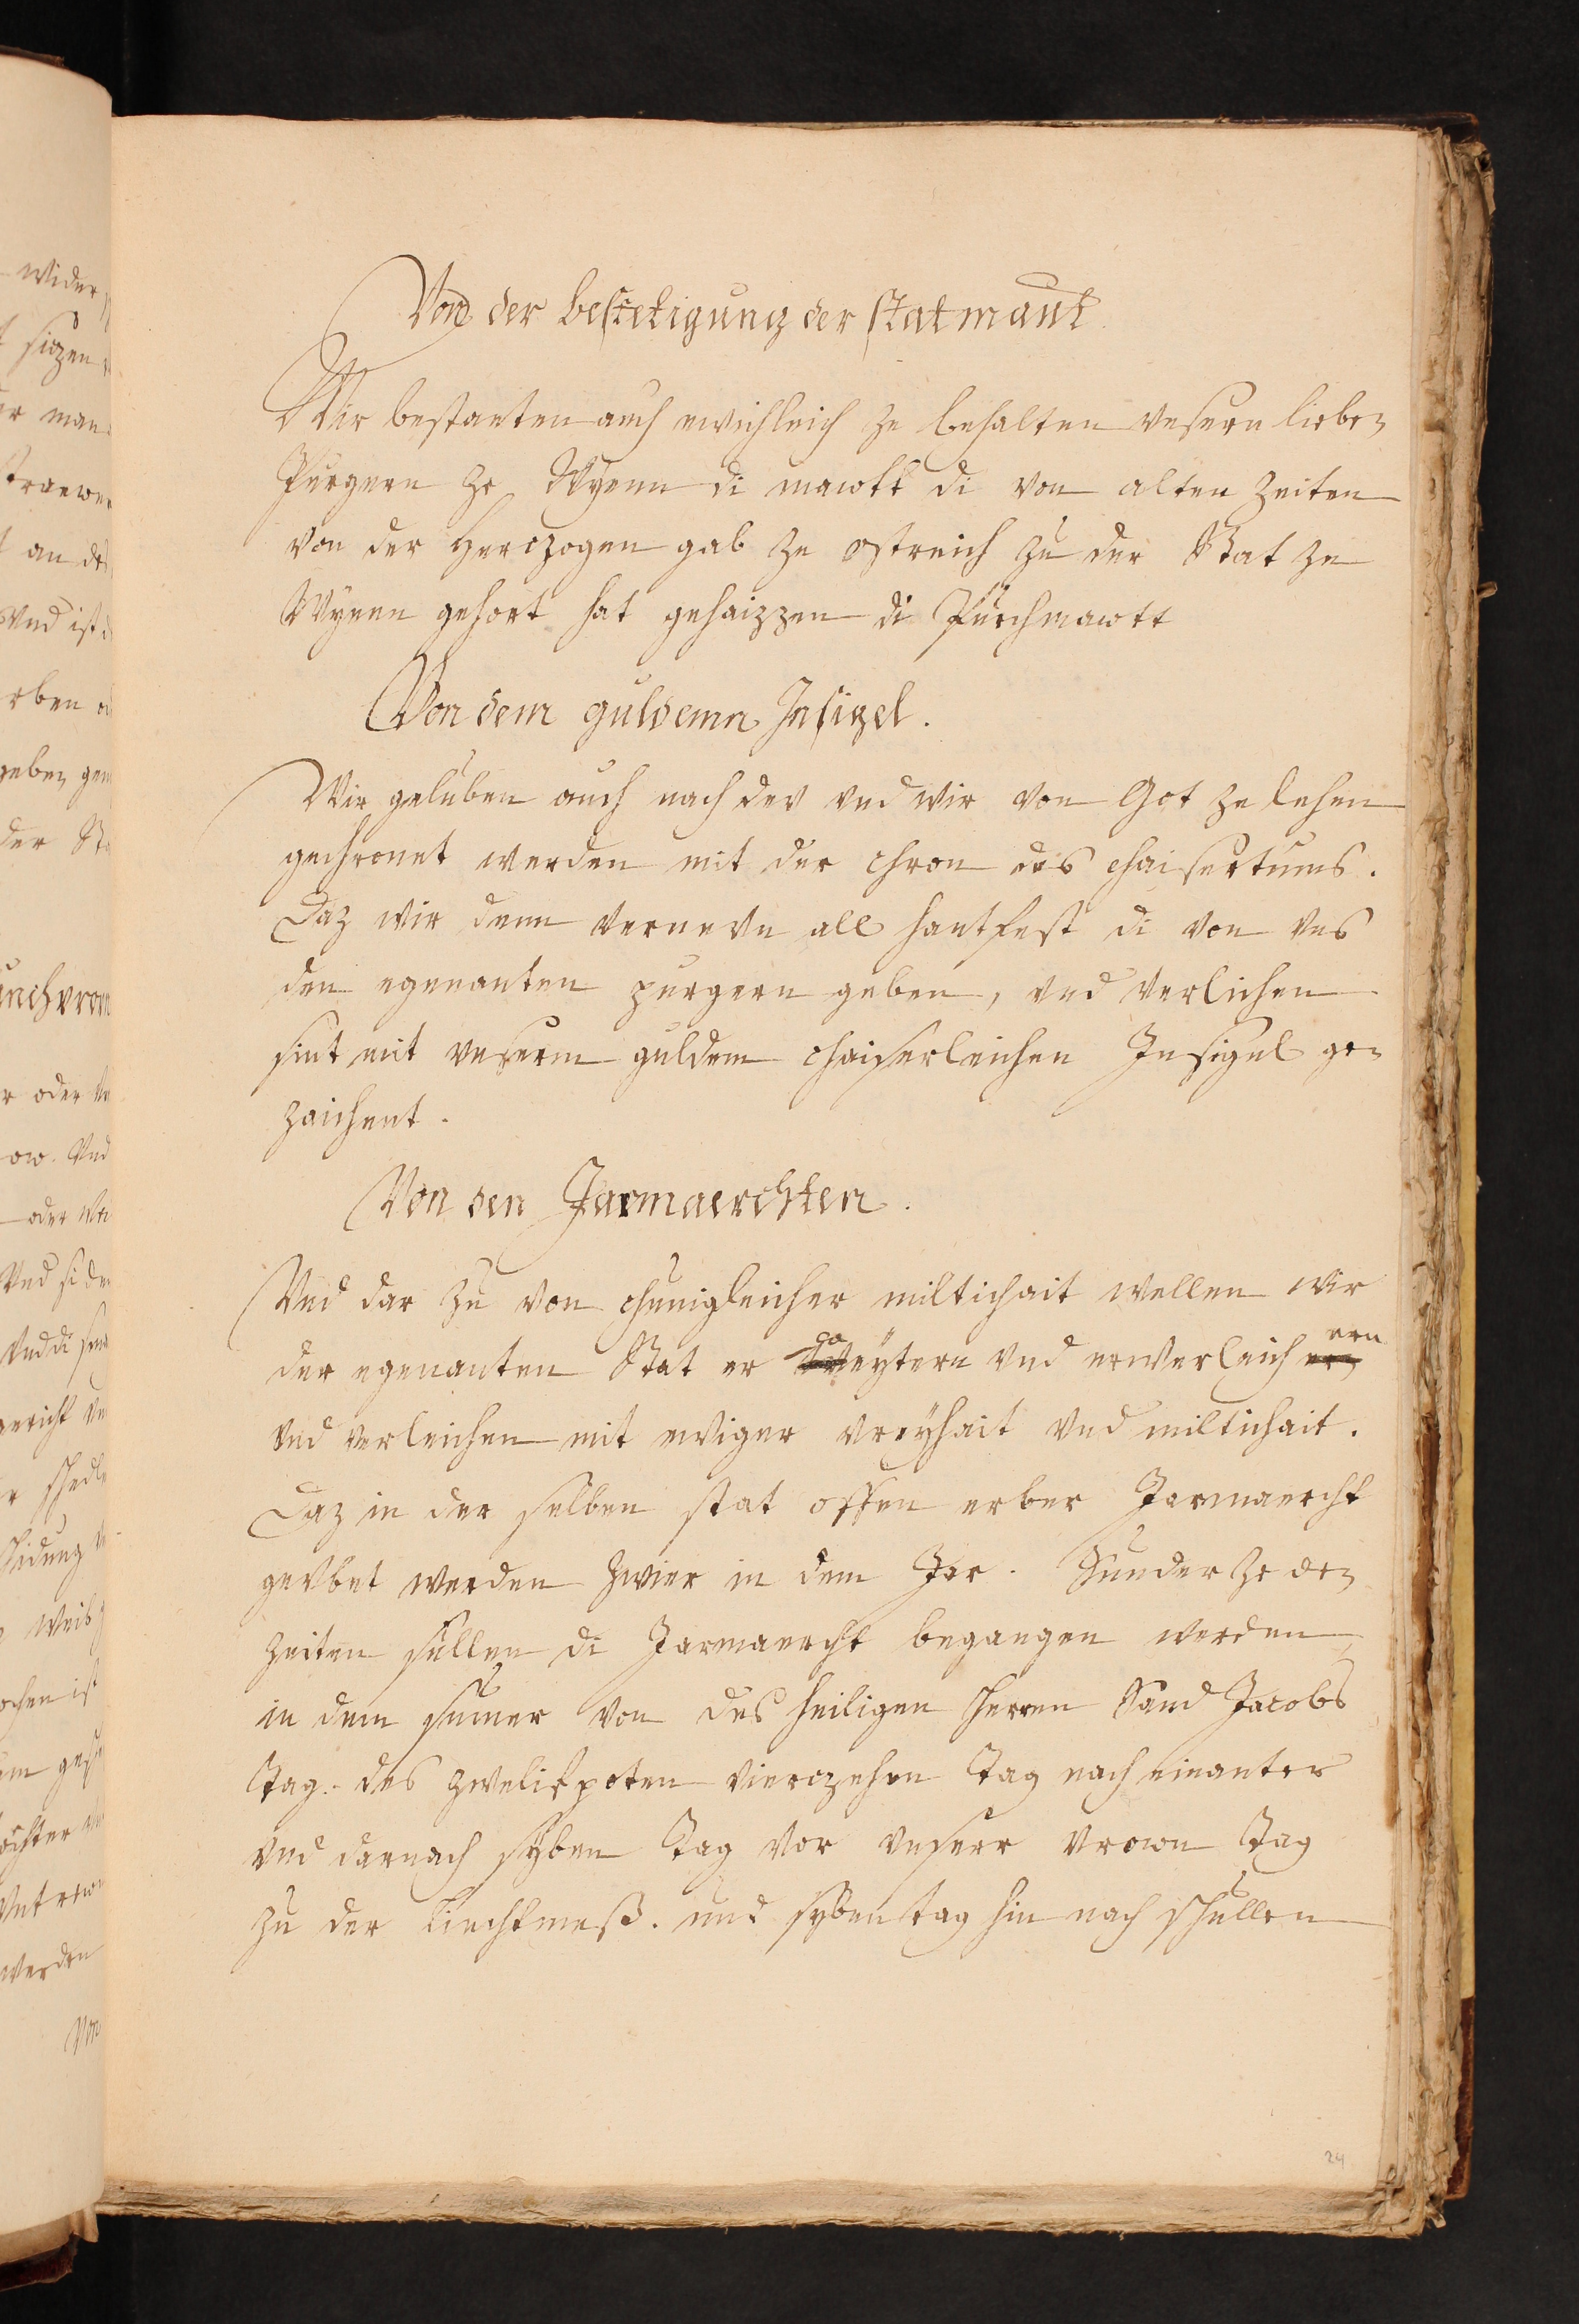 Von der bestetigung der statmaut.
Wir bestaeten auch ewichleich ze behalten vnsern lieben
Purgern ze Wyenn di mawtt di von alten zeiten
von der Herczogen gab ze ostreich zu der Stat ze
Wyenn gehort hat gehaizzen di Purchmawtt
Von dem guldemn Insigel.
Wir geluben auch nach dev vnd wir von Got ze lehen
gechronet werden mit der chron des chaisertums.
Daz wir denn vernevn all hantfest di von vns
den egenanten purgern geben, vnd verlichen
sint mit vnserm guldem chaiserleichen Insigel ge-
zaichent.
Von den Jarmaerchten.
Vnd dar zu von chunigleicher miltichait wellen wir
der egenanten Stat er weytern vnd erwerleich ern
vnd verleichen mit ewiger vreyhait vnd miltichait.
Daz in der selben stat offen erber Jarmaercht
gevbet werden zwier in dem Jar. Sunder ze den
zeiten sullen di Jarmaercht begangen werden
in dem sumer von des heiligen Herren Sand Jacobs
Tag. des zwelifpoten vierczehen Tag nach einanter
vnd darnach syben Tag vor vnserr vrown Tag
zu der Liechtmeß. und syben tag hin nach schullen
24